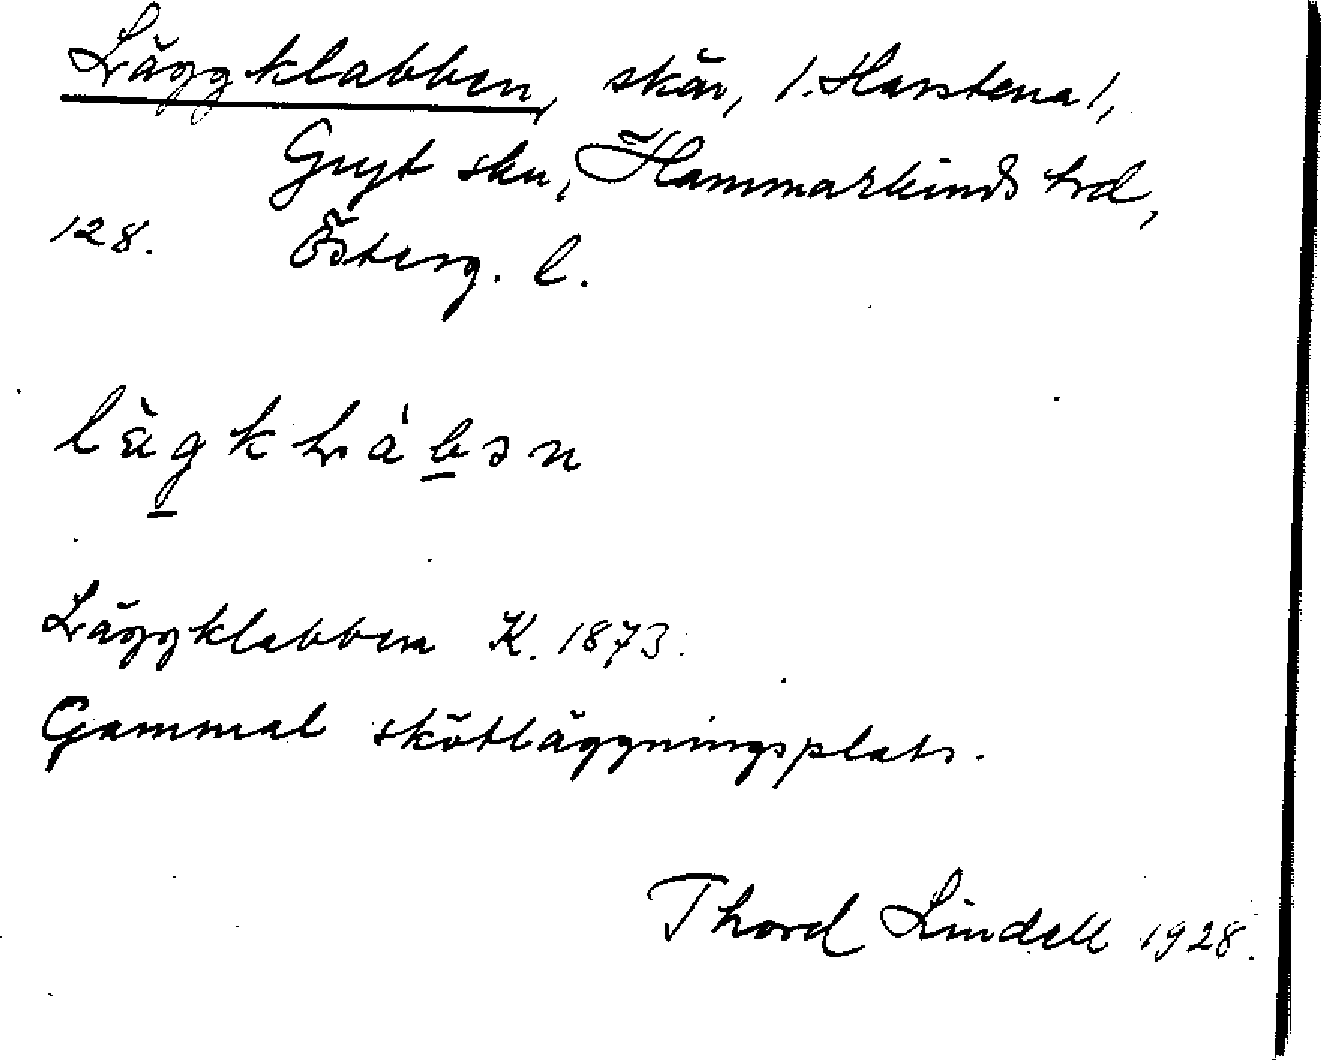 Läggklabben, skär, /. Harstena /,
Gryt skn, Hammarkinds hd,
128. Österg. l.
lä̀gklábən
Läggklabben K. 1873.
Gammal skötläggningsplats.
Thord Lindell 1928.